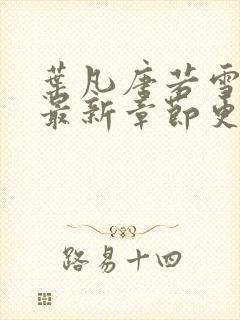 葉凡唐若雪
最新章節更
路易十四